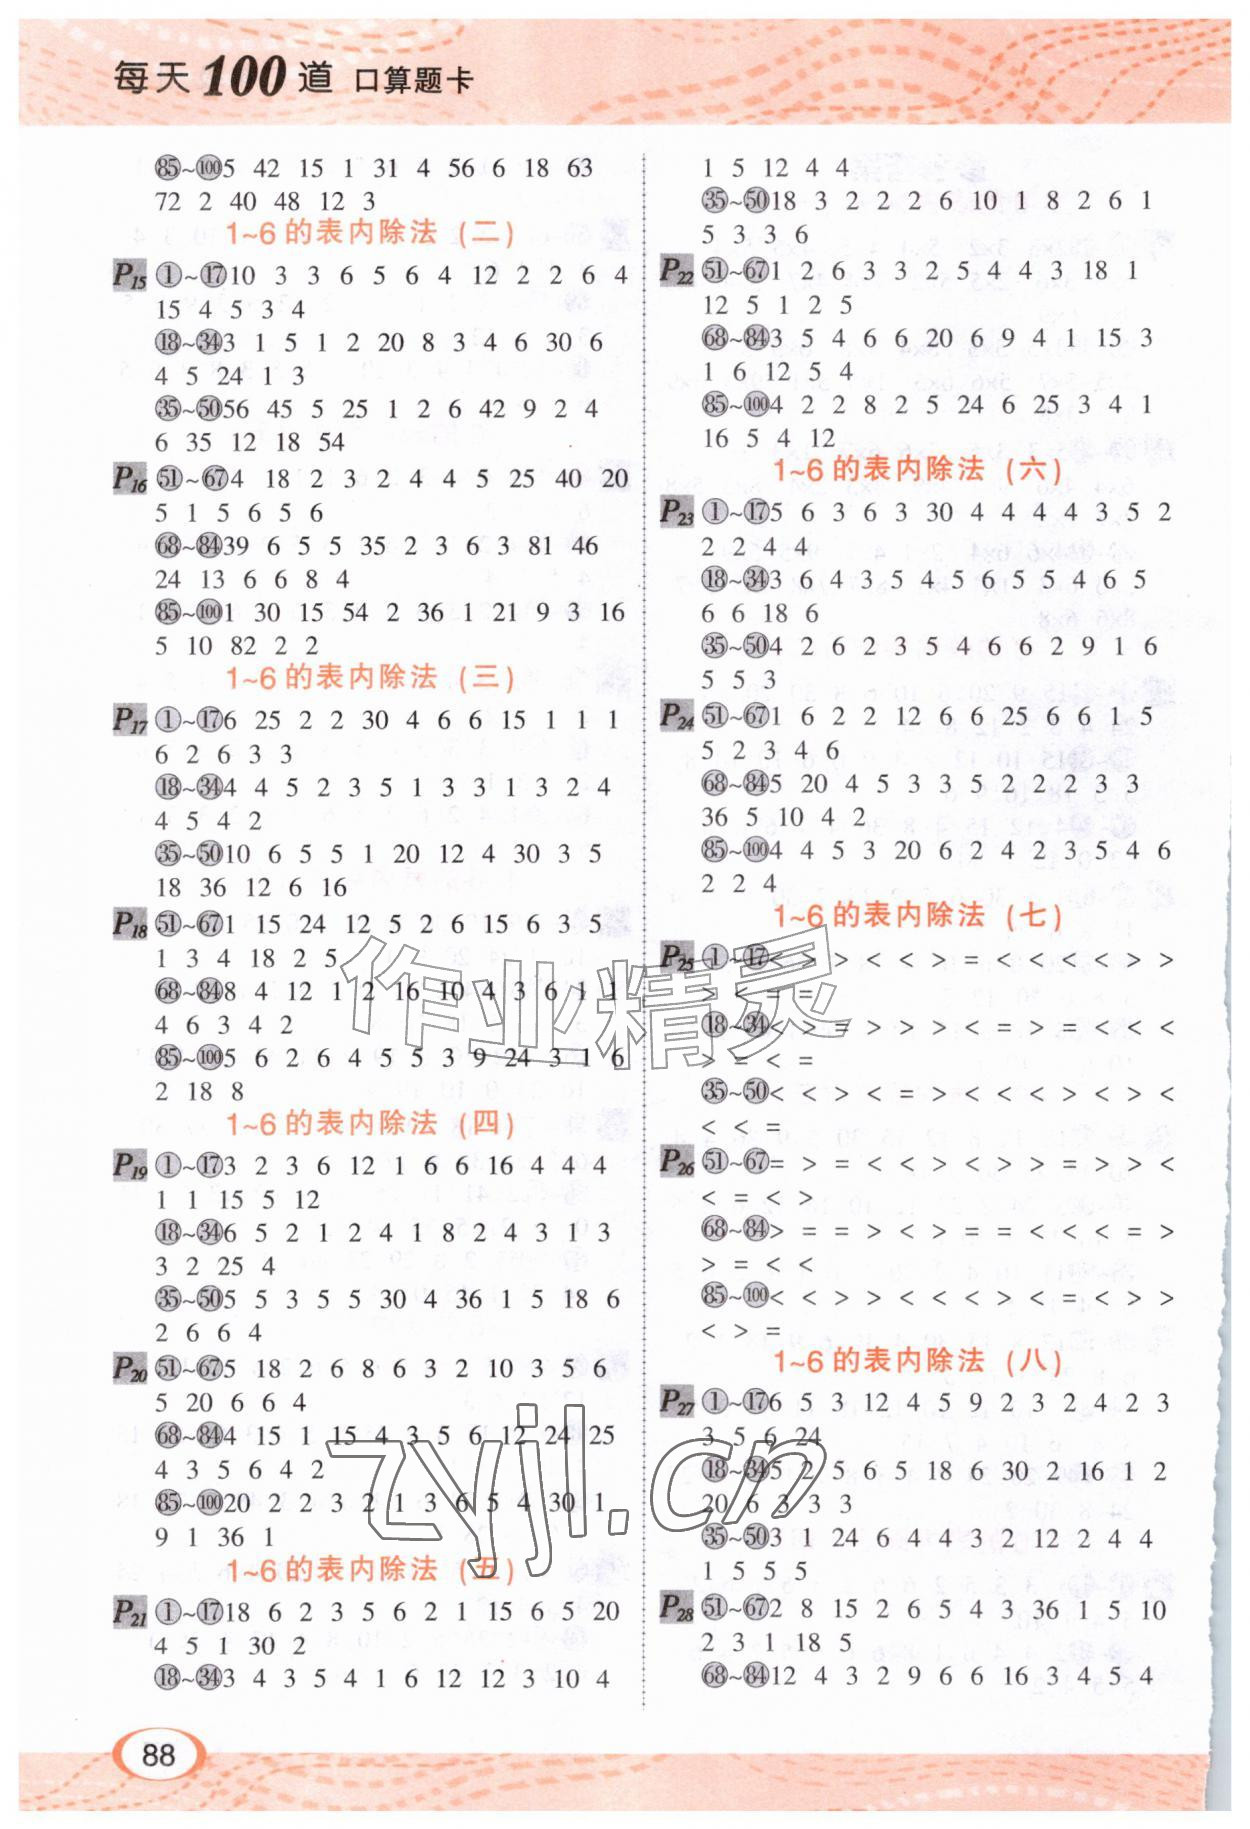 每天100道 口算题卡
85~100 5 42 15 1 31 4 56 6 18 63
72 2 40 48 12 3
1~6的表内除法(二)
P15 1~17 10 3 3 6 5 6 4 12 2 2 6 4
15 4 5 3 4
18~34 3 1 5 1 2 20 8 3 4 6 30 6
4 5 24 1 3
35~50 56 45 5 25 1 2 6 42 9 2 4
6 35 12 18 54
P16 51~67 4 18 2 3 2 4 4 5 25 40 20
5 1 5 6 5 6
68~84 39 6 5 5 35 2 3 6 3 81 46
24 13 6 6 8 4
85~100 1 30 15 54 2 36 1 21 9 3 16
5 10 82 2 2
1~6的表内除法(三)
P17 1~17 6 25 2 2 30 4 6 6 15 1 1 1
6 2 6 3 3
18~34 4 4 5 2 3 5 1 3 3 1 3 2 4
4 5 4 2
35~50 10 6 5 5 1 20 12 4 30 3 5
18 36 12 6 16
P18 51~67 1 15 24 12 5 2 6 15 6 3 5
1 3 4 18 2 5
68~84 8 4 12 1 2 16 10 4 3 6 1 1
4 6 3 4 2
85~100 5 6 2 6 4 5 5 3 9 24 3 1 6
2 18 8
1~6的表内除法(四)
P19 1~17 3 2 3 6 12 1 6 6 16 4 4 4
1 1 15 5 12
18~34 6 5 2 1 2 4 1 8 2 4 3 1 3
3 2 25 4
35~50 5 5 3 5 5 30 4 36 1 5 18 6
2 6 6 4
P20 51~67 5 18 2 6 8 6 3 2 10 3 5 6
5 20 6 6 4
68~84 4 15 1 15 4 3 5 6 12 24 25
4 3 5 6 4 2
85~100 20 2 2 3 2 1 3 6 5 4 30 1
9 1 36 1
1~6的表内除法(五)
P21 1~17 18 6 2 3 5 6 2 1 15 6 5 20
4 5 1 30 2
18~34 3 4 3 5 4 1 6 12 12 3 10 4
1 5 12 4 4
35~50 18 3 2 2 2 6 10 1 8 2 6 1
5 3 3 6
P22 51~67 1 2 6 3 3 2 5 4 4 3 18 1
12 5 1 2 5
68~84 3 5 4 6 6 20 6 9 4 1 15 3
1 6 12 5 4
85~100 4 2 2 8 2 5 24 6 25 3 4 1
16 5 4 12
1~6的表内除法(六)
P23 1~17 5 6 3 6 3 30 4 4 4 4 3 5 2
2 2 4 4
18~34 3 6 4 3 5 4 5 6 5 5 4 6 5
6 6 18 6
35~50 4 2 6 2 3 5 4 6 6 2 9 1 6
5 5 3
P24 51~67 1 6 2 2 12 6 6 25 6 6 1 5
5 2 3 4 6
68~84 5 20 4 5 3 3 5 2 2 2 3 3
36 5 10 4 2
85~100 4 4 5 3 20 6 2 4 2 3 5 4 6
2 2 4
1~6的表内除法(七)
P25 1~17 < > > < < > = < < < < > >
> < = =
18~34 < > = > > > < = > = < < <
> = < =
35~50 < < > > < = > < < < > < >
< < =
P26 51~67 = > = < < > > > = > > < <
< = < >
68~84 > = = > < > = = < < < = >
> = < <
85~100 < < > > < < < > < = < > >
< > =
1~6的表内除法(八)
P27 1~17 6 5 3 12 4 5 9 2 3 2 4 2 3
3 5 6 24
18~34 5 2 5 6 5 18 6 30 2 16 1 2
20 6 3 3 3
35~50 3 1 24 6 4 4 3 2 12 2 4 4
1 5 5 5
P28 51~67 2 8 15 2 6 5 4 3 36 1 5 10
2 3 1 18 5
68~84 12 4 3 2 9 6 6 16 3 4 5 4
88
作业精灵
zyjl.cn